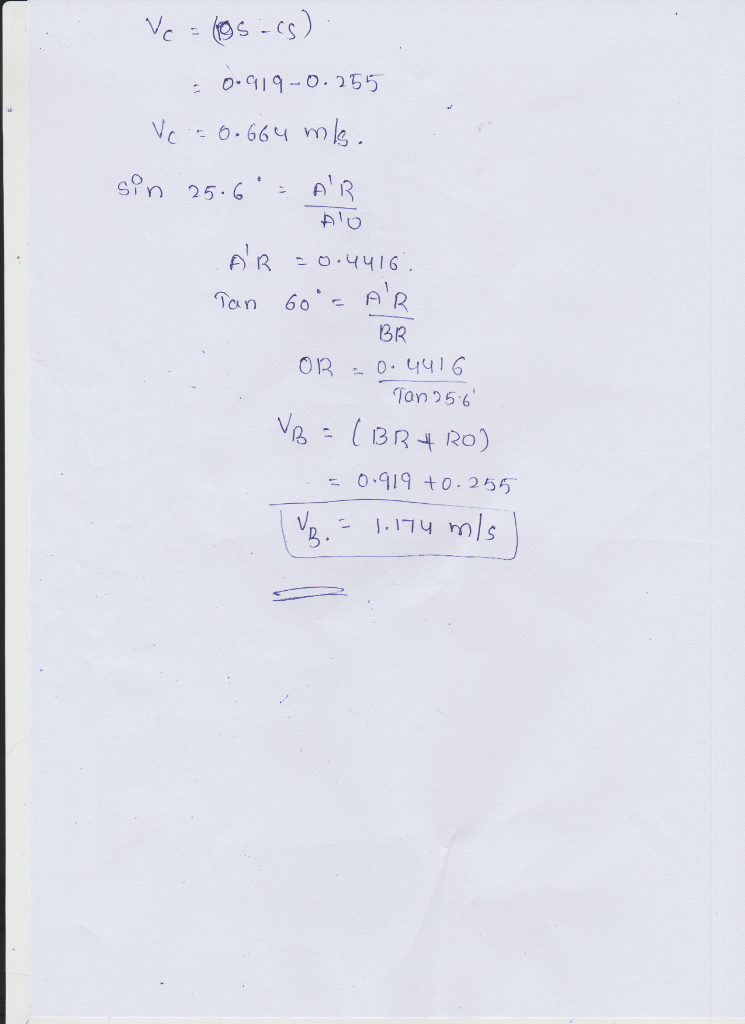 Vc = (OS - CS)
= 0.919 - 0.255
Vc = 0.664 m/s.
Sin 25.6° = A'R / A'O
A'R = 0.4416.
Tan 60° = A'R / BR
OR = 0.4416 / Tan 25.6°
VB = (BR + RO)
= 0.919 + 0.255
VB. = 1.174 m/s